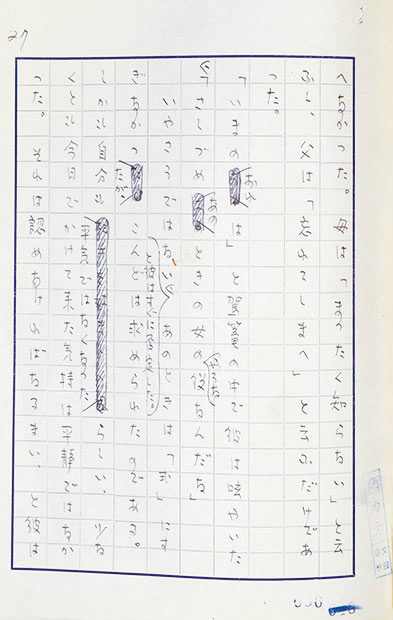 27
へなかった。母は「まったく知らない」と云
ふし、父は「忘れてしまへ」と云ふだけであ
った。
「いまのおれは」と賀宴の中で彼は呟やいた
さしづめあのときの女の役なんだな」
いやさうではない あのときは「」にす
と彼はすぐに否定した。
ぎなかったが、こんどは求められたのである。
しかし自分は平気ではなくなったらしい、少な
くとも今日でかけて来た気持は平静ではなか
った。それは認めなければなるまい、と彼は